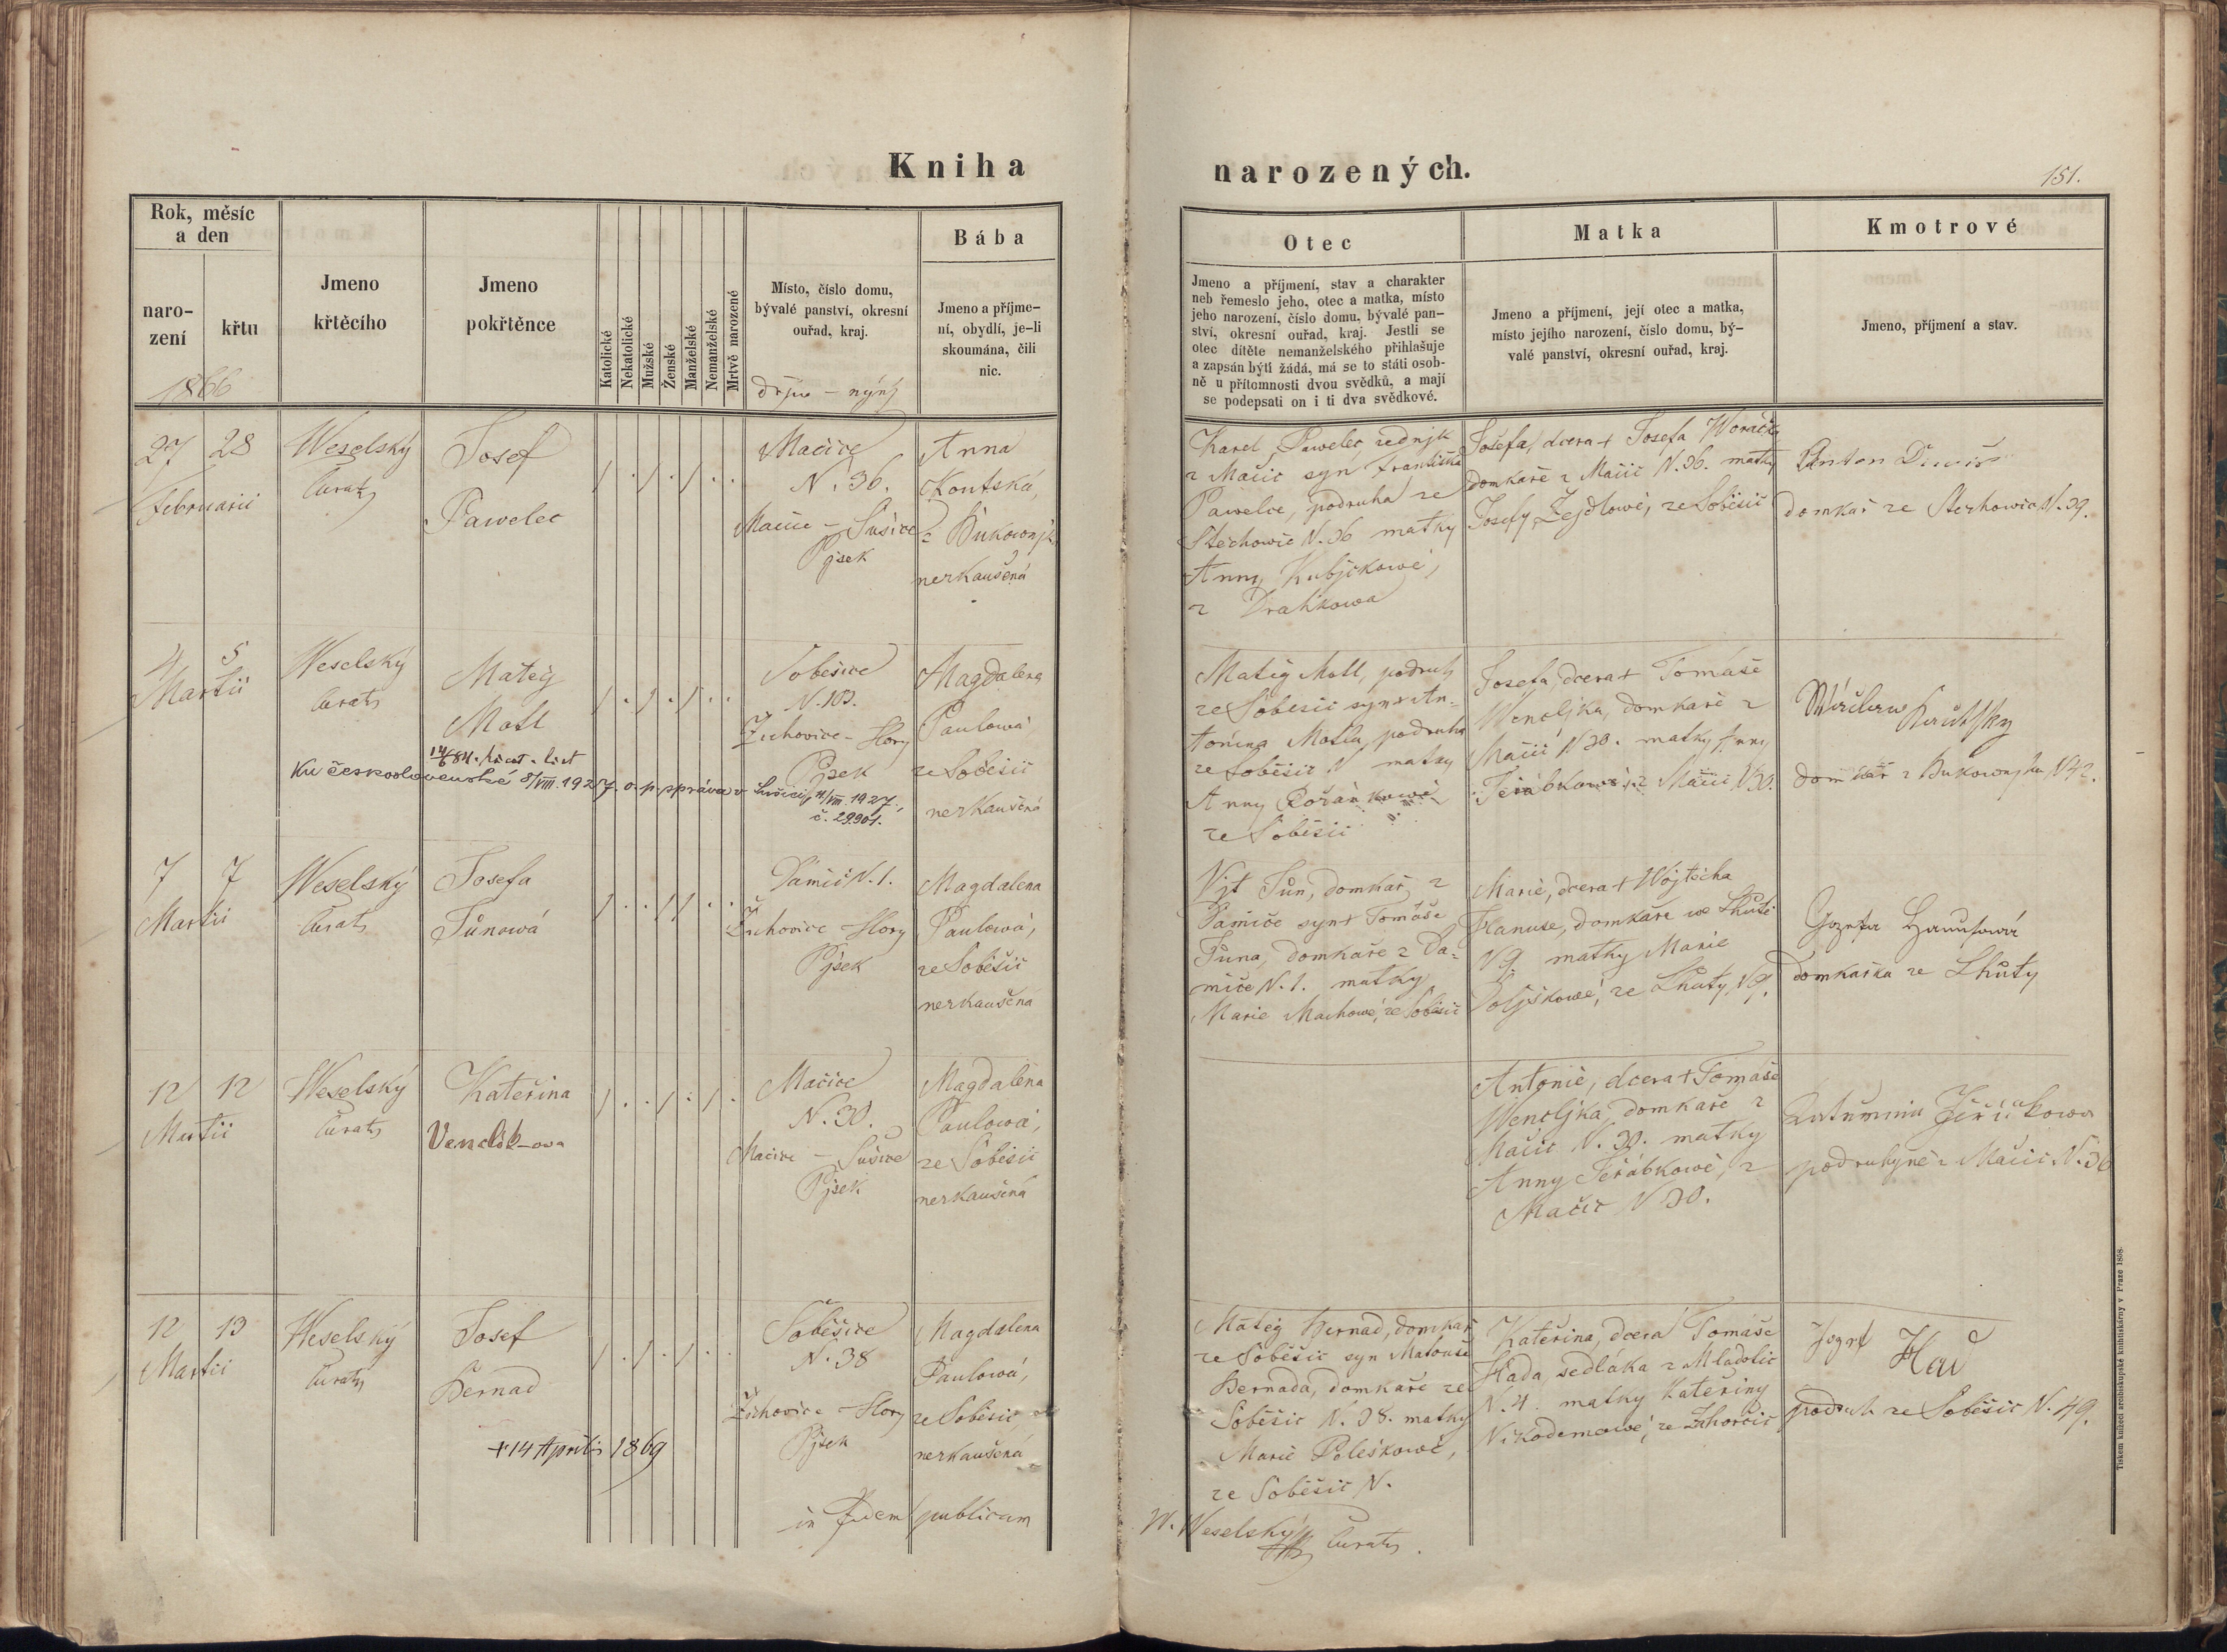 Kniha narozených.
151.
Rok, měsíc
a den
naro-
zení
křtu
1866
Jmeno
křtěcího
Jmeno
pokřtěnce
Katolické
Nekatolické
Mužské
Ženské
Manželské
Nemanželské
Mrtvě narozené
Místo, číslo domu,
bývalé panství, okresní
ouřad, kraj.
dřjve – nýnj
Bába
Jmeno a příjme-
ní, obydlí, je-li
skoumána, čili
nic.
Otec
Jmeno a příjmení, stav a charakter
neb řemeslo jeho, otec a matka, místo
jeho narození, číslo domu, bývalé pan-
ství, okresní ouřad, kraj. Jestli se
otec dítěte nemanželského přihlašuje
a zapsán býti žádá, má se to státi osob-
ně u přítomnosti dvou svědků, a mají
se podepsati on i ti dva svědkové.
Matka
Jmeno a příjmení, její otec a matka,
místo jejího narození, číslo domu, bý-
valé panství, okresní ouřad, kraj.
Kmotrové
Jmeno, příjmení a stav.
27 28
Februarii
Weselský
Curatus
Josef
Pawelec
Mačice
N. 36.
Mačice – Sušice
Pjsek
Anna
Koutská,
z Bukownjk
nezkaušená
Karel Pawelec zednjk
z Mačic syn Františka
Pawelce, podruha ze
Stěchowic N. 36 matky
Anny Kubjčkowé,
z Drahkowa
Josefa, dcera + Josefa Woráčka
domkaře z Mačic N. 36. matky
Josefy Žejdlowé, ze Soběšic
Anton
domkář ze Stěchowic N. 39.
4 5
Martii
Weselský
Curatus
Matěg
Motl
Ku československé 8/VIII. 1927 o. p. správa v Sušici, 11/VIII. 1927,
č. 29.901.
Soběšice
N. 103.
Žichovice – Hory
Pjsek
Magdalena
Paulowá
ze Soběšic
nezkaušená
Matěg Motl, podruh
ze Soběšic syn + An-
tonína Motla, podruha
ze Soběšic N matky
Anny
ze Soběšic
Josefa, dcera + Tomáše
Wencljka, domkaře z
Mačic N 30. matky Anny
Jeřábkowé, z Mačic N 30.
Wáclaw
domkář z Bukownjka N 42.
7 7
Martii
Weselský
Curatus
Josefa
Tůnowá
Damič N. 1.
Žichovice – Hory
Pjsek
Magdalena
Paulowá,
ze Soběšic
nezkaušená
Vjt Tůn, domkař z
Damiče syn + Tomáše
Tůna, domkaře z Da-
miče N. 1. matky
Marie Machowé, ze Soběšic
Marie, dcera + Wojtěcha
Hanuse, domkaře ze Lhůtě
N 9. matky Marie
Poljškowé, ze Lhůty N 9.
Jozefa Hanusowá
domkařka ze Lhůty
12 12
Martii
Weselský
Curatus
Kateřina
Venclík-ova
Mačice
N. 30.
Mačice – Sušice
Pjsek
Magdalena
Paulowá,
ze Soběšic
nezkaušená
Antonie, dcera + Tomáše
Wencljka, domkaře z
Mačic N. 30. matky
Anny Jeřábkowé, z
Mačic N 30.
podruhyně z Mačic N. 36
12 13
Martii
Weselský
Curatus
Josef
Bernad
+ 14 Aprilis 1869
Soběšice
N. 38
Žichovice – Hory
Pjsek
Magdalena
Paulowá,
ze Soběšic
nezkaušená
Matěg Bernad, domkař
ze Soběšic syn Matouše
Bernada, domkaře ze
Soběšic N. 38. matky
Marie Poleškowé,
ze Soběšic N.
Kateřina, dcera Tomáše
Hada sedláka z Mladotic
N. 4. matky Kateřiny
Nikodemowé, ze Zahorčic
Jozef
podruh ze Soběšic N. 49.
in fidem publicam
W. Weselský Curatus.
Tiskem knížecí arcibiskupské knihtiskárny v Praze 1858.